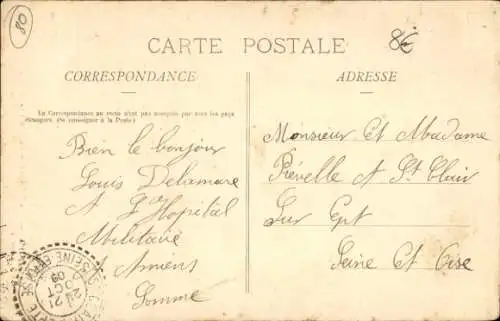 80
8€
CARTE POSTALE
CORRESPONDANCE
ADRESSE
La Correspondance au recto n'est pas acceptée par tous les pays
étrangers. (Se renseigner à la Poste)
Bien le bonjour
Louis Delamare
A L'Hopital
Militaire
A Amiens
Somme
Monsieur Et Madame
Piévelle A St Clair
Sur Ept
Seine Et Oise
SEINE
21
OCT
09